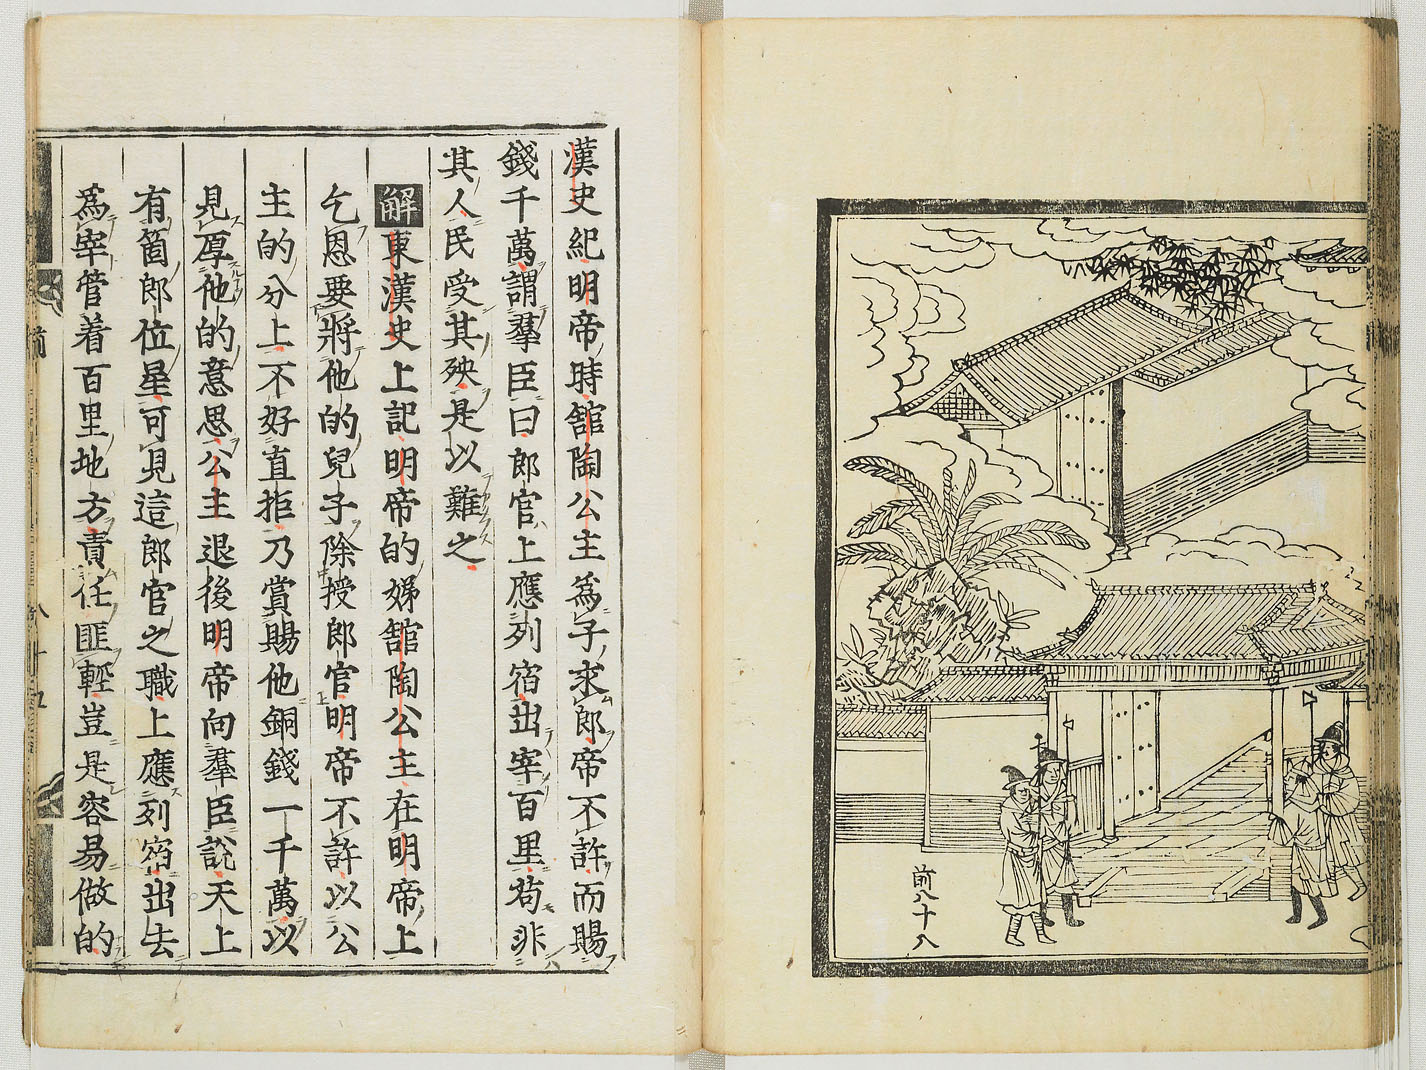 前八十八
漢史紀明帝時舘陶公主爲子求郎帝不許而賜
錢千萬謂羣臣曰郎官上應列宿出宰百里苟非
其人民受其殃是以難之
解東漢史上記明帝的姊舘陶公主在明帝上
乞恩要將他的兒子除授郎官明帝不許以公
主的分上不好直拒乃賞賜他銅錢一千萬以
見厚他的意思公主退後明帝向羣臣說天上
有箇郎位星可見這郎官之職上應列宿出去
爲宰管着百里地方責任匪輕豈是容易做的